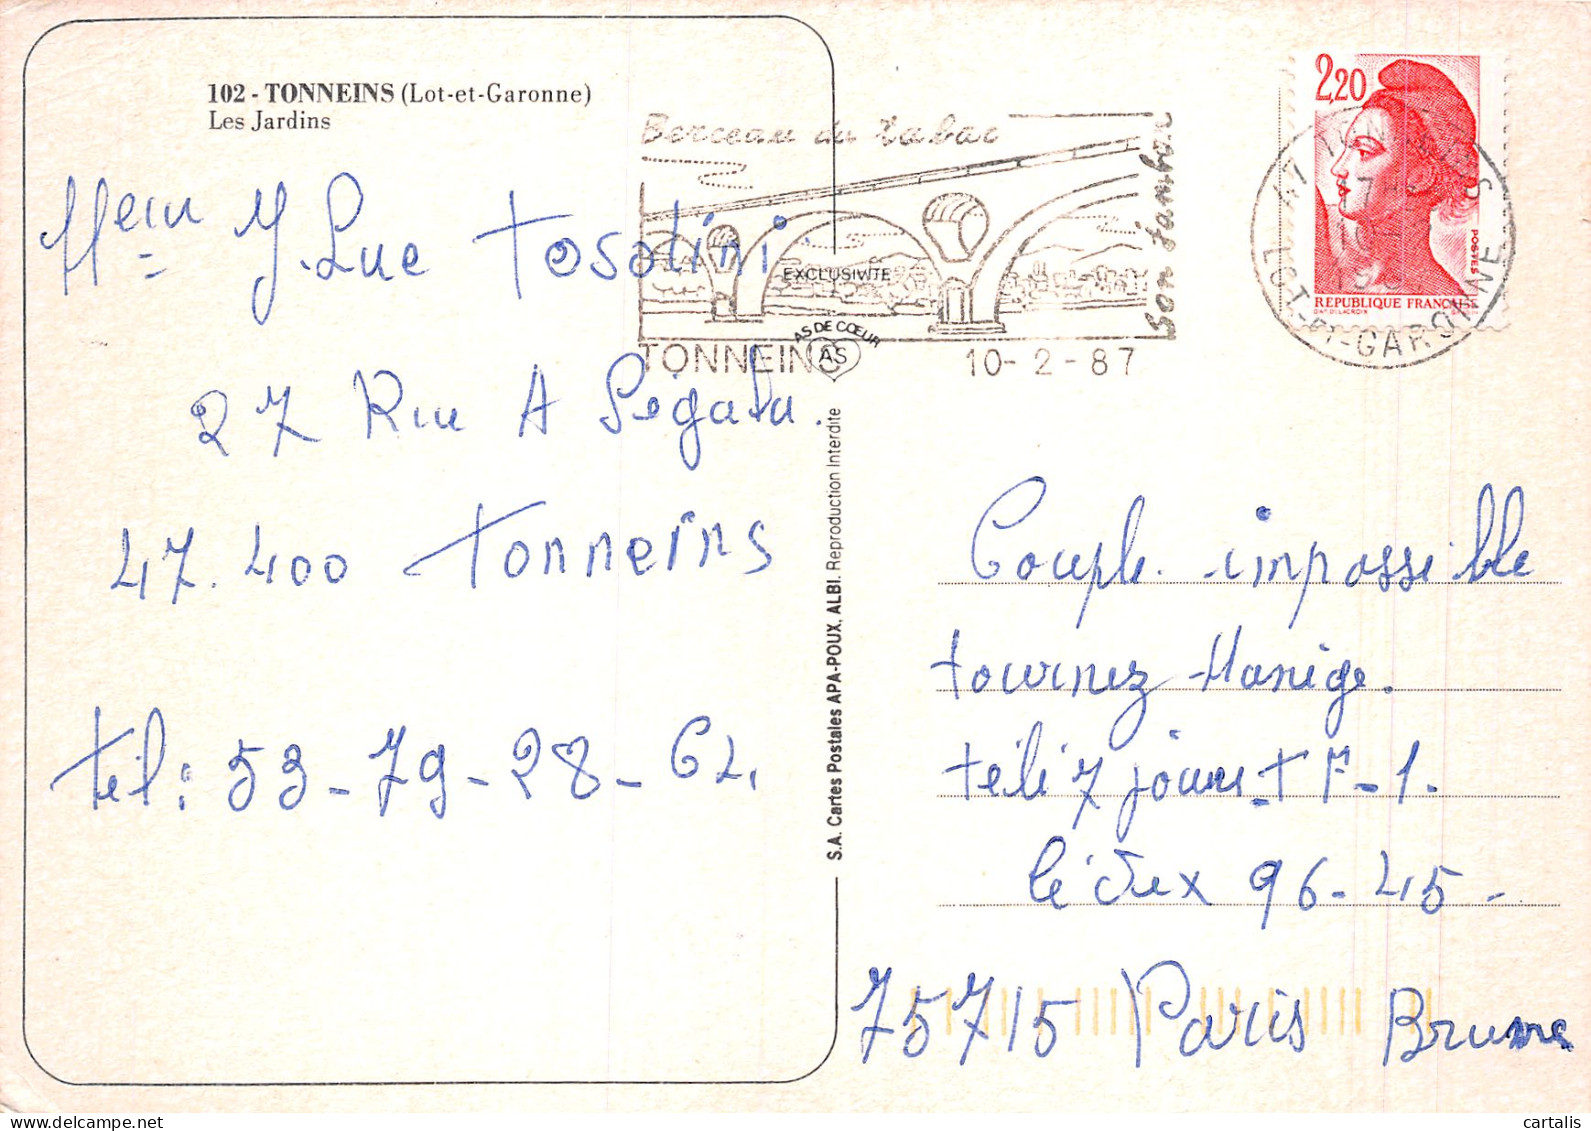 102 - TONNEINS (Lot-et-Garonne)
Les Jardins
J. Luc Tosolini
27 Rue A Ségala.
47.400 Tonneins
tél: 53-79-28-62.
Berceau du tabac
son jambon
EXCLUSIVITE
AS DE CŒUR
AS
TONNEINS 10-2-87
S.A. Cartes Postales APA-POUX, ALBI. Reproduction Interdite
2,20
POSTES
REPUBLIQUE FRANÇAISE
D'AP. DELACROIX
47 TONNEINS
1987
LOT-ET-GARONNE
Couple impossible
tournez Manège.
téli 7 jours T F-1.
96-45-
75715 Paris Brune
cartalis